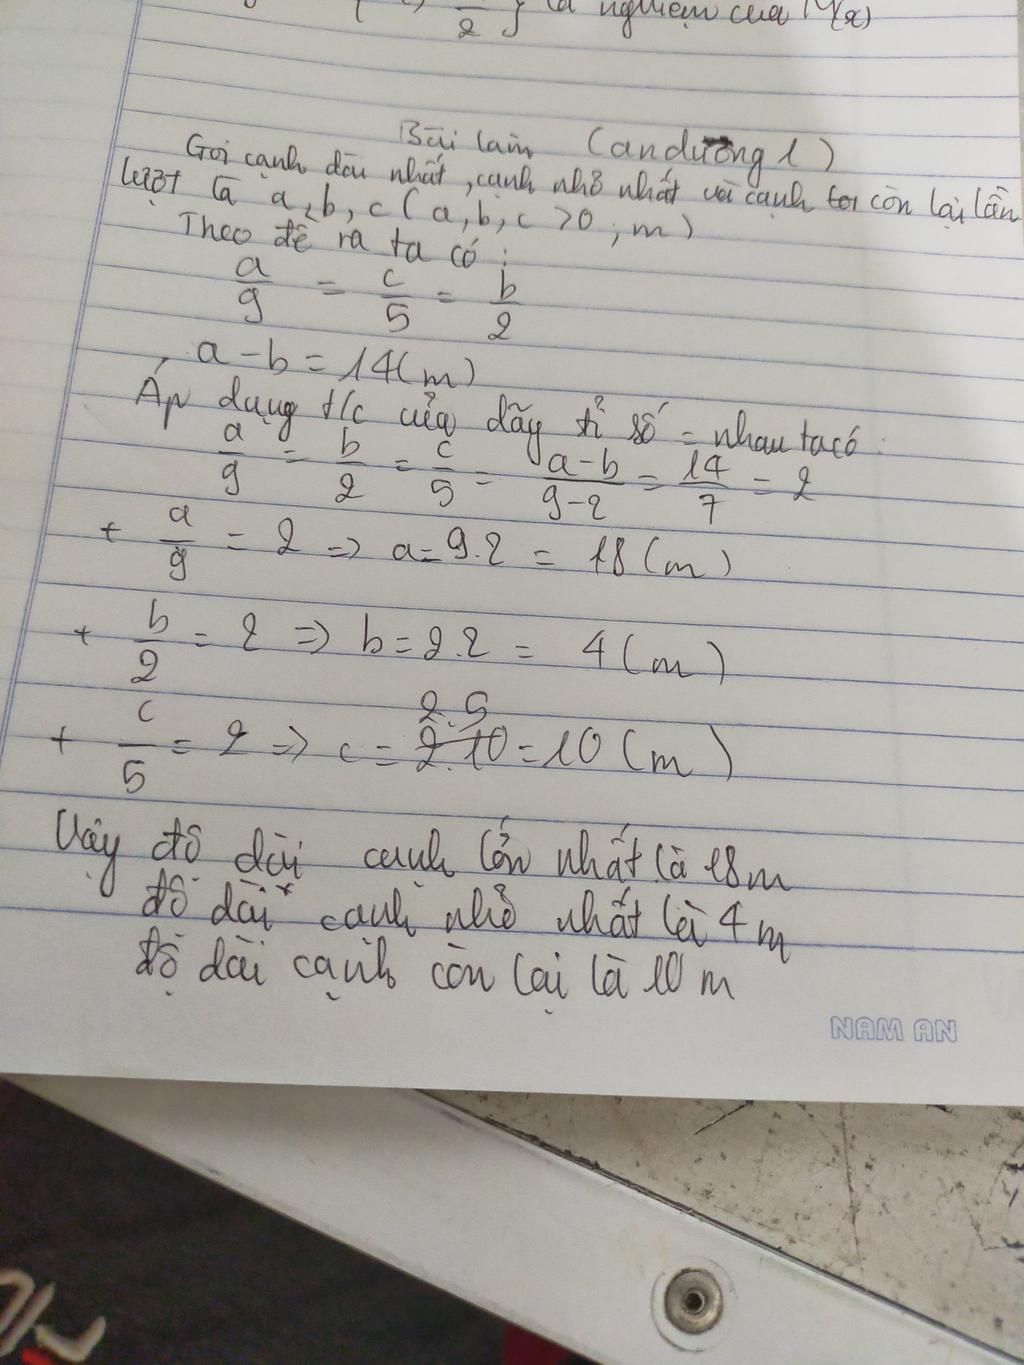 2 } là nghiệm của M(x)
Bài làm (an dương 1)
Gọi cạnh dài nhất, cạnh nhỏ nhất và cạnh còn lại lần
lượt là a, b, c (a, b, c > 0 ; m)
Theo đề ra ta có :
a/9 = c/5 = b/2
, a - b = 14(m)
Áp dụng t/c của dãy tỉ số = nhau ta có :
a/9 = b/2 = c/5 = a-b/9-2 = 14/7 = 2
+ a/9 = 2 => a = 9.2 = 18 (m)
+ b/2 = 2 => b = 2.2 = 4 (m)
2.5
+ c/5 = 2 => c = 2.10 = 10 (m)
Vậy độ dài cạnh lớn nhất là 18m
độ dài cạnh nhỏ nhất là 4m
độ dài cạnh còn lại là 10m
NAM AN